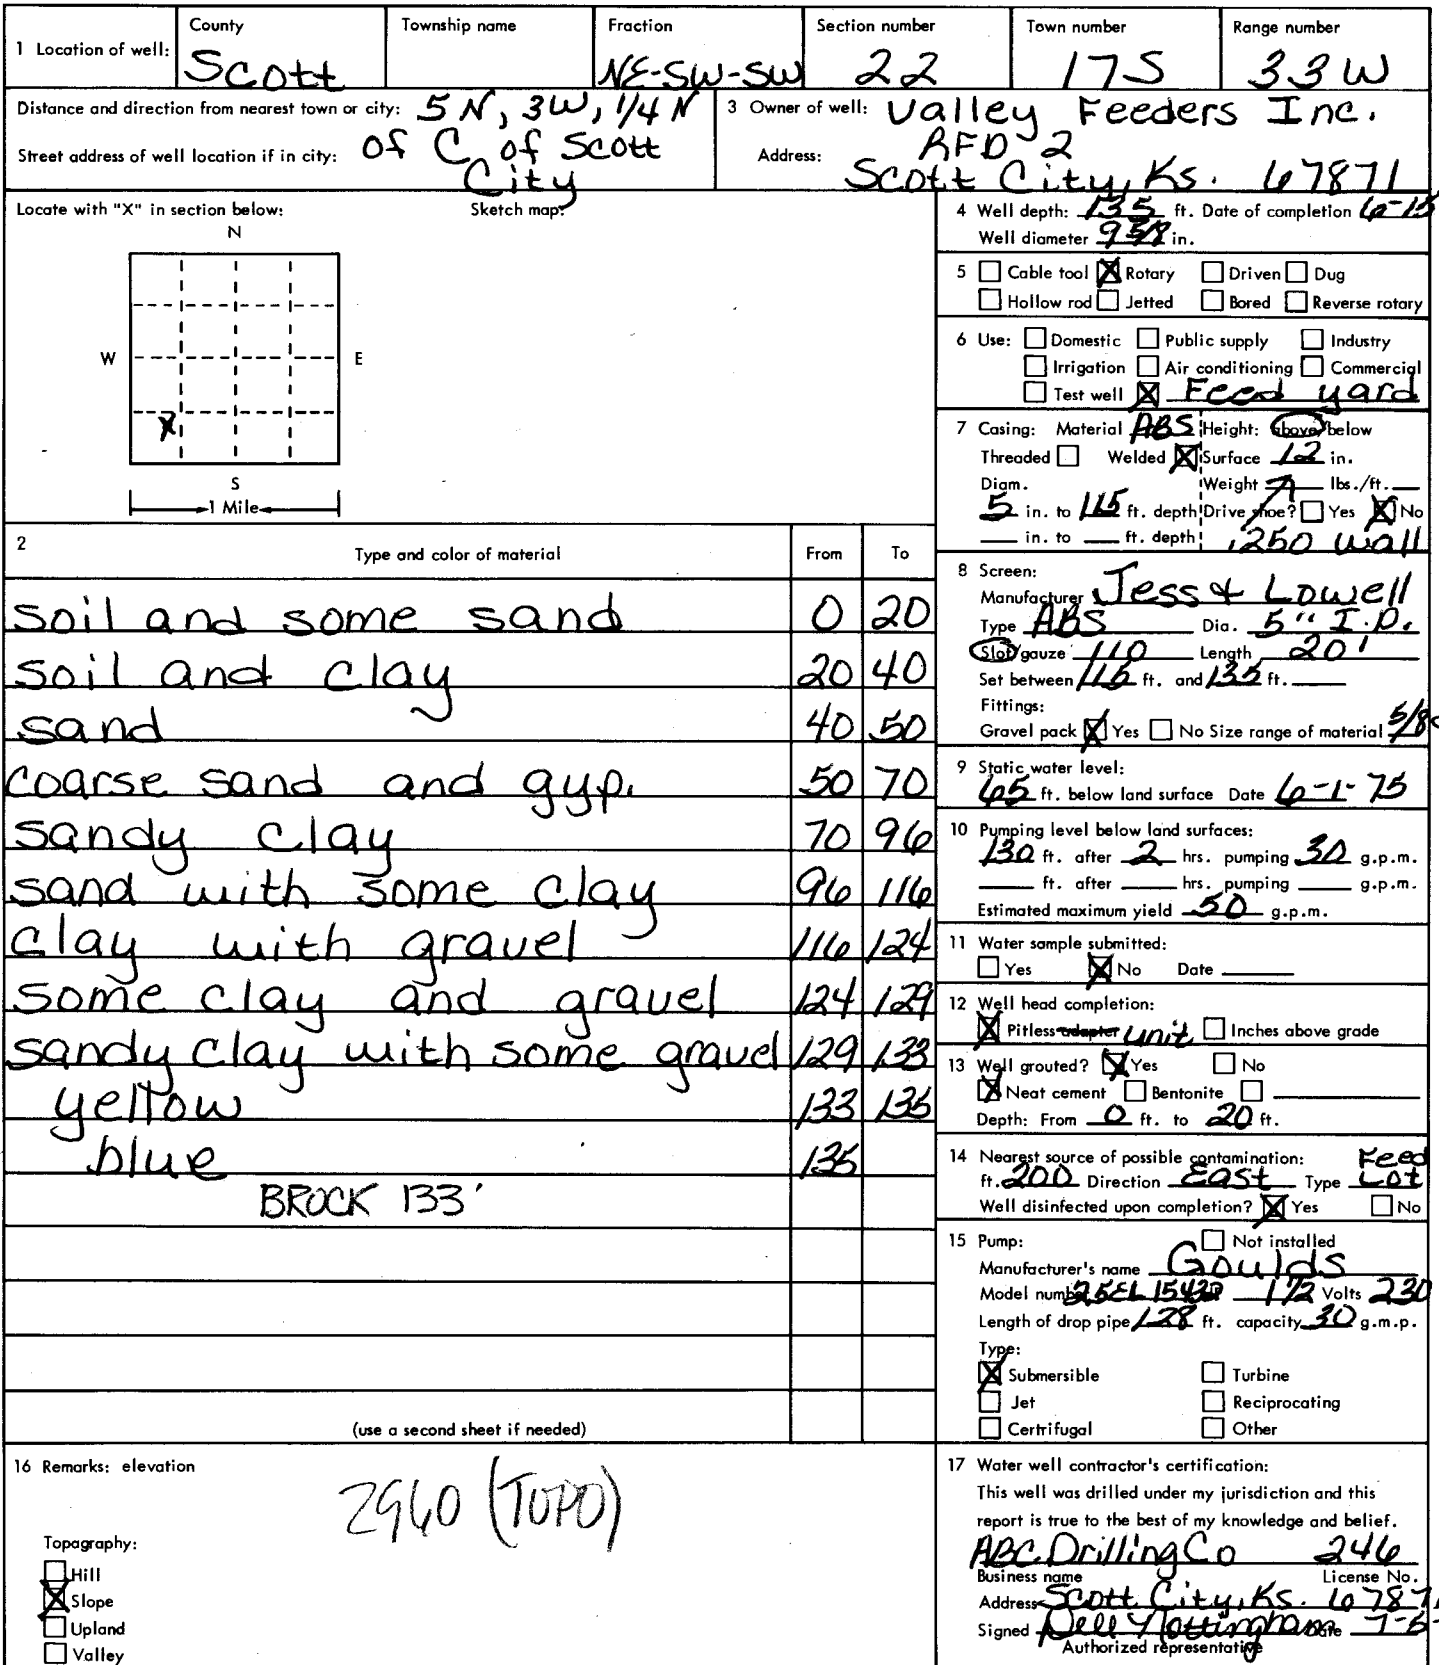 1 Location of well: County Township name Fraction Section number Town number Range number
Scott NE-SW-SW 22 17S 33W
Distance and direction from nearest town or city: 5 N, 3W, 1/4 N
Street address of well location if in city: of C of Scott
City
3 Owner of well: Valley Feeders Inc.
Address: RFD 2
Scott City, Ks. 67871
Locate with "X" in section below: Sketch map:
N
W E
X
S
1 Mile
2 Type and color of material From To
soil and some sand 0 20
soil and clay 20 40
sand 40 50
coarse sand and gyp. 50 70
sandy clay 70 96
sand with some clay 96 116
clay with gravel 116 124
some clay and gravel 124 129
sandy clay with some gravel 129 133
yellow 133 135
blue 135
BROCK 133'
(use a second sheet if needed)
16 Remarks: elevation
2960 (TOPO)
Topography:
Hill
X Slope
Upland
Valley
4 Well depth: 135 ft. Date of completion 6-15
Well diameter 9 5/8 in.
5 Cable tool X Rotary Driven Dug
Hollow rod Jetted Bored Reverse rotary
6 Use: Domestic Public supply Industry
Irrigation Air conditioning Commercial
Test well X Feed yard
7 Casing: Material ABS Height: above/below
Threaded Welded X Surface 12 in.
Diam. Weight lbs./ft.
5 in. to 115 ft. depth Drive shoe? Yes X No
in. to ft. depth .250 wall
8 Screen:
Manufacturer Jess & Lowell
Type ABS Dia. 5" I.D.
Slot/gauze 110 Length 20'
Set between 115 ft. and 135 ft.
Fittings:
Gravel pack X Yes No Size range of material 5/8
9 Static water level:
65 ft. below land surface Date 6-1-75
10 Pumping level below land surfaces:
130 ft. after 2 hrs. pumping 30 g.p.m.
ft. after hrs. pumping g.p.m.
Estimated maximum yield 50 g.p.m.
11 Water sample submitted:
Yes X No Date
12 Well head completion:
X Pitless adapter unit Inches above grade
13 Well grouted? X Yes No
X Neat cement Bentonite
Depth: From 0 ft. to 20 ft.
14 Nearest source of possible contamination: Feed
ft. 200 Direction East Type Lot
Well disinfected upon completion? X Yes No
15 Pump: Not installed
Manufacturer's name Goulds
Model number 25EL 1 1/2 Volts 230
Length of drop pipe 128 ft. capacity 30 g.m.p.
Type:
X Submersible Turbine
Jet Reciprocating
Certrifugal Other
17 Water well contractor's certification:
This well was drilled under my jurisdiction and this
report is true to the best of my knowledge and belief.
ABC Drilling Co 246
Business name License No.
Address Scott City, Ks. 6787
Signed Dell Nottingham Date 7-5-
Authorized representative